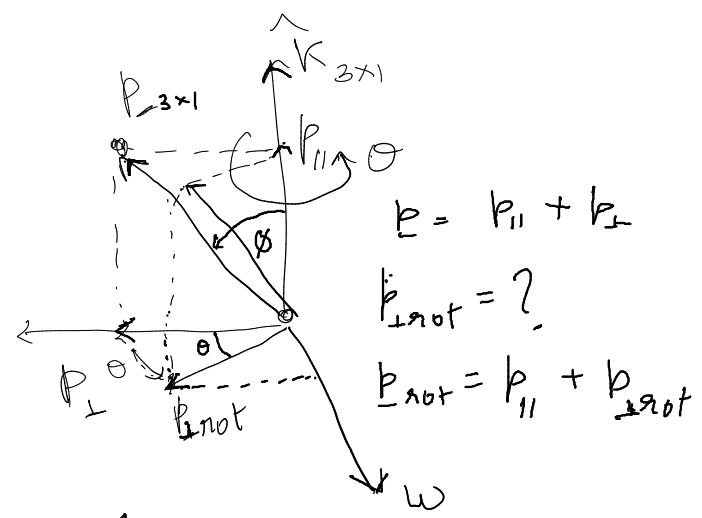 k̂ 3×1
p 3×1
p||
θ
ϕ
p = p|| + p⊥
p⊥rot = ?
θ
θ
p⊥
p⊥rot
p rot = p|| + p⊥rot
w